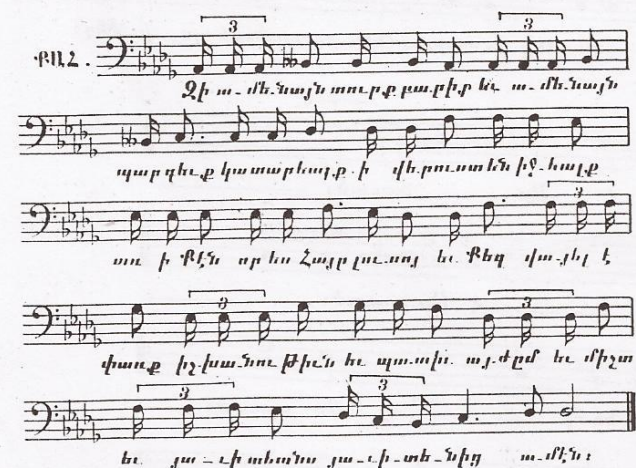 ՔԱՀ.
3 3
Զի ա-մե-նայն տուրք բա-րիք եւ ա-մե-նայն
պար-գեւ-ք կա-տար-եալ-ք-ի վե-րուստ են իջ-եալք
3
առ ի Քէն որ ես Հայր լու-սոյ եւ Քեզ վա-յել է
3 3
փառք իշ-խա-նու-թիւն եւ պա-տիւ. այ-ժըմ եւ միշտ
3 3
եւ յա-ւի-տեանս յա-ւի-տե-նից ա-մէն: